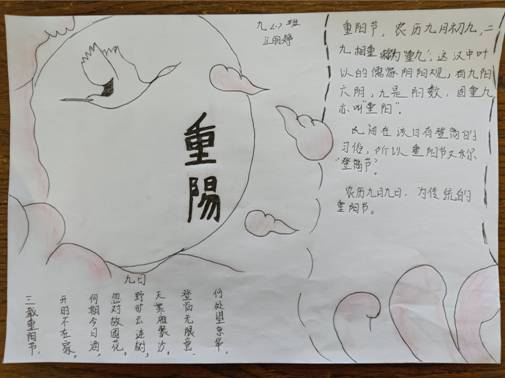 九(二)班
重陽
重阳节，农历九月初九，二
九相重，称为"重九"，这汉中叶
以的儒家阴阳观，有九阳
六阴，九是阳数，因重九
亦叫"重阳"。
民间在该日有登高的
习俗，所以重阳节又称
"登高节"。
农历九月九日，为传统的
重阳节。
九日
三载重阳节，
开时不在家，
何期今日酒，
忽对故园花，
野旷云连树，
天寒雁聚沙，
登高无限意，
何处望京华，